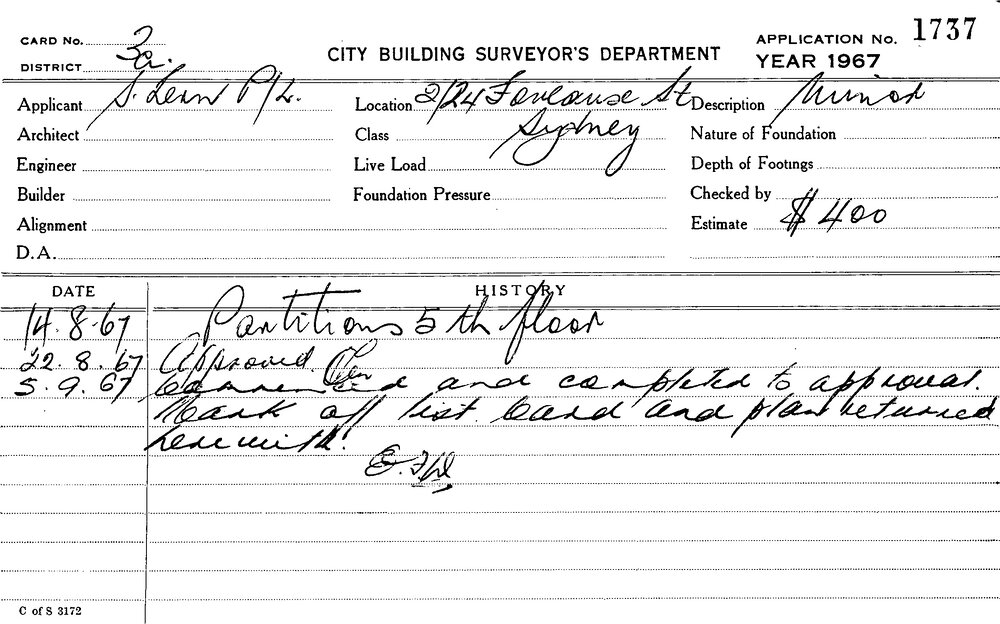 CARD No. 3a.
DISTRICT
CITY BUILDING SURVEYOR'S DEPARTMENT
APPLICATION No. 1737
YEAR 1967
Applicant S. Lenn P/L.
Location 2/24 St
Description Minor
Architect
Class Sydney
Nature of Foundation
Engineer
Live Load
Depth of Footings
Builder
Foundation Pressure
Checked by
Alignment
Estimate $400
D.A.
DATE
HISTORY
14.8.67 Partitions 5th floor
22.8.67 Approved.
5.9.67 Commenced and completed to approval.
Mark off list. Card and plan returned
herewith.
C of S 3172